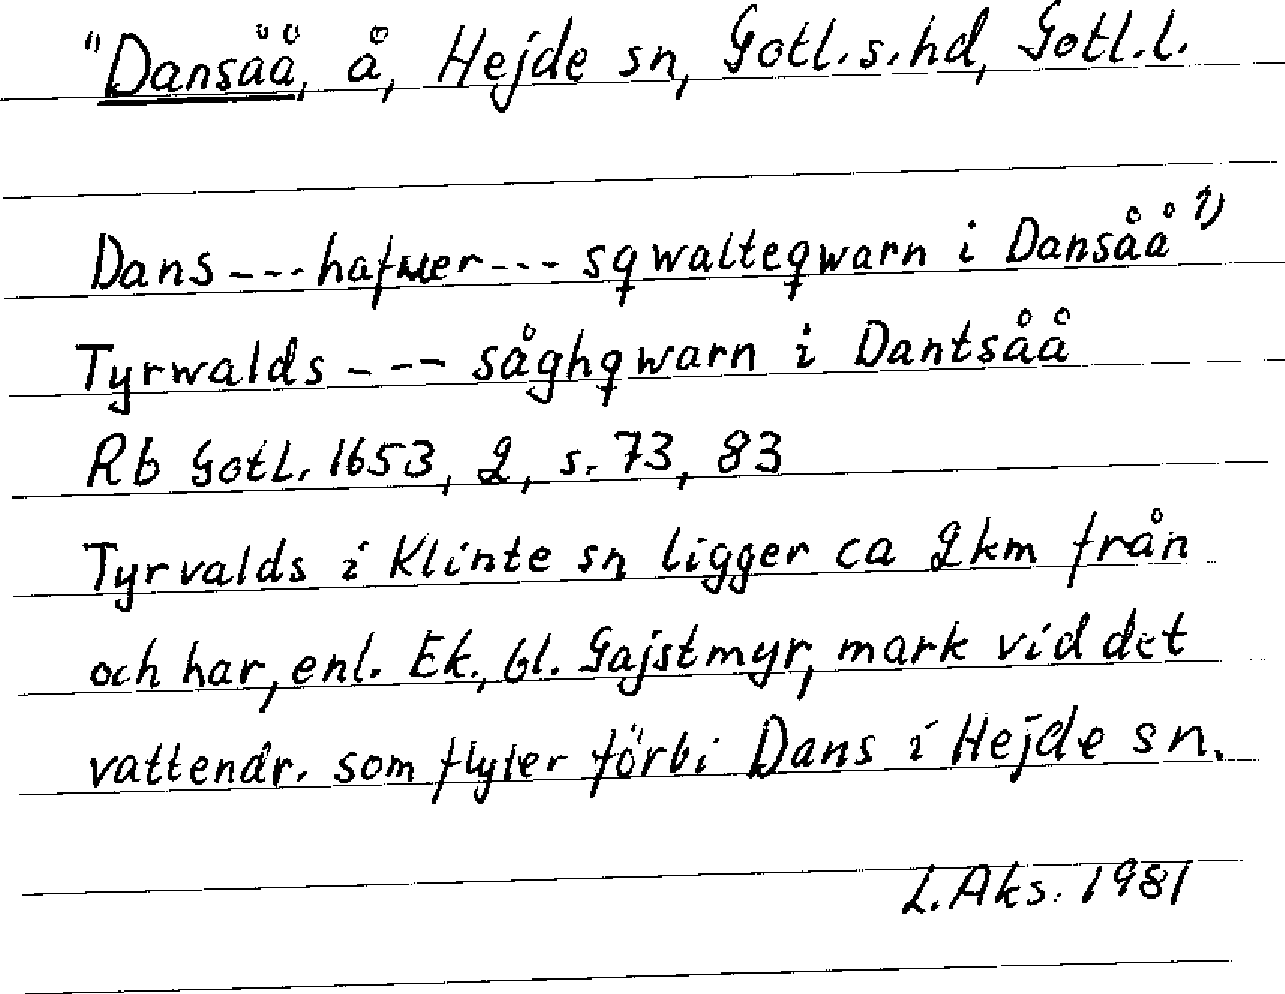 "Dansåå, å, Hejde sn, Gotl.s.hd, Gotl.l.
Dans --- hafwer --- sqwalteqwarn i Dansåå 1)
Tyrwalds --- såghqwarn i Dantsåå
Rb Gotl. 1653, 2, s. 73, 83
Tyrvalds i Klinte sn ligger ca 2 km från
och har, enl. Ek., bl. Gajstmyr, mark vid det
vattendr. som flyter förbi Dans i Hejde sn.
L. Aks. 1981